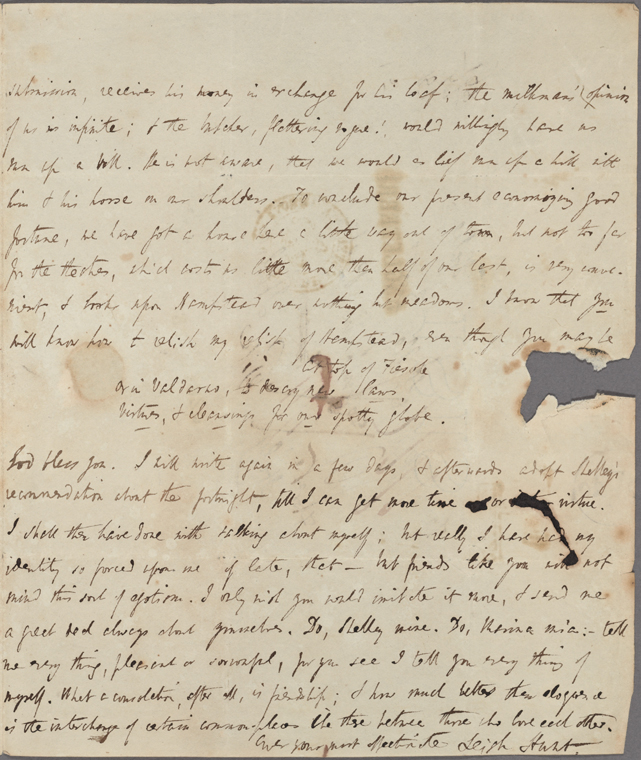 submission, receives his money in exchange for his loaf; the milkman's opinion
of us is infinite; & the butcher, flattering rogue! would willingly have us
run up a bill. He is not aware, that we would as lief run up a hill with
him & his horse on our shoulders. To conclude our present economizing good
fortune, we have got a house here a little way out of town, but not too far
for the theatres, which costs us little more than half of our last, is very conve-
nient, & looks upon Hampstead over nothing but meadows. I know that you
will know how to relish my relish of Hampstead, even though you may be
At top of Fiesole
or in Valdarno, to descry new lawns,
Virtues, & cleansings for our spotty globe.
God bless you. I will write again in a few days, & afterwards adopt Shelley's
recommendation about the fortnight, till I can get more time or virtue.
I shall then have done with talking about myself; but really I have had my
identity so forced upon me of late, that — but friends like you will not
mind this sort of egotism. I only wish you would imitate it more, & send me
a great deal always about yourselves. Do, Shelley mine. Do, Marina mia:— tell
me every thing, pleasant or sorrowful, for you see I tell you every thing of
myself. What a consolation, after all, is friendship; & how much better than eloquence
is the interchange of certain common-places like these between those who love each other.
Ever yours most affectionate Leigh Hunt.